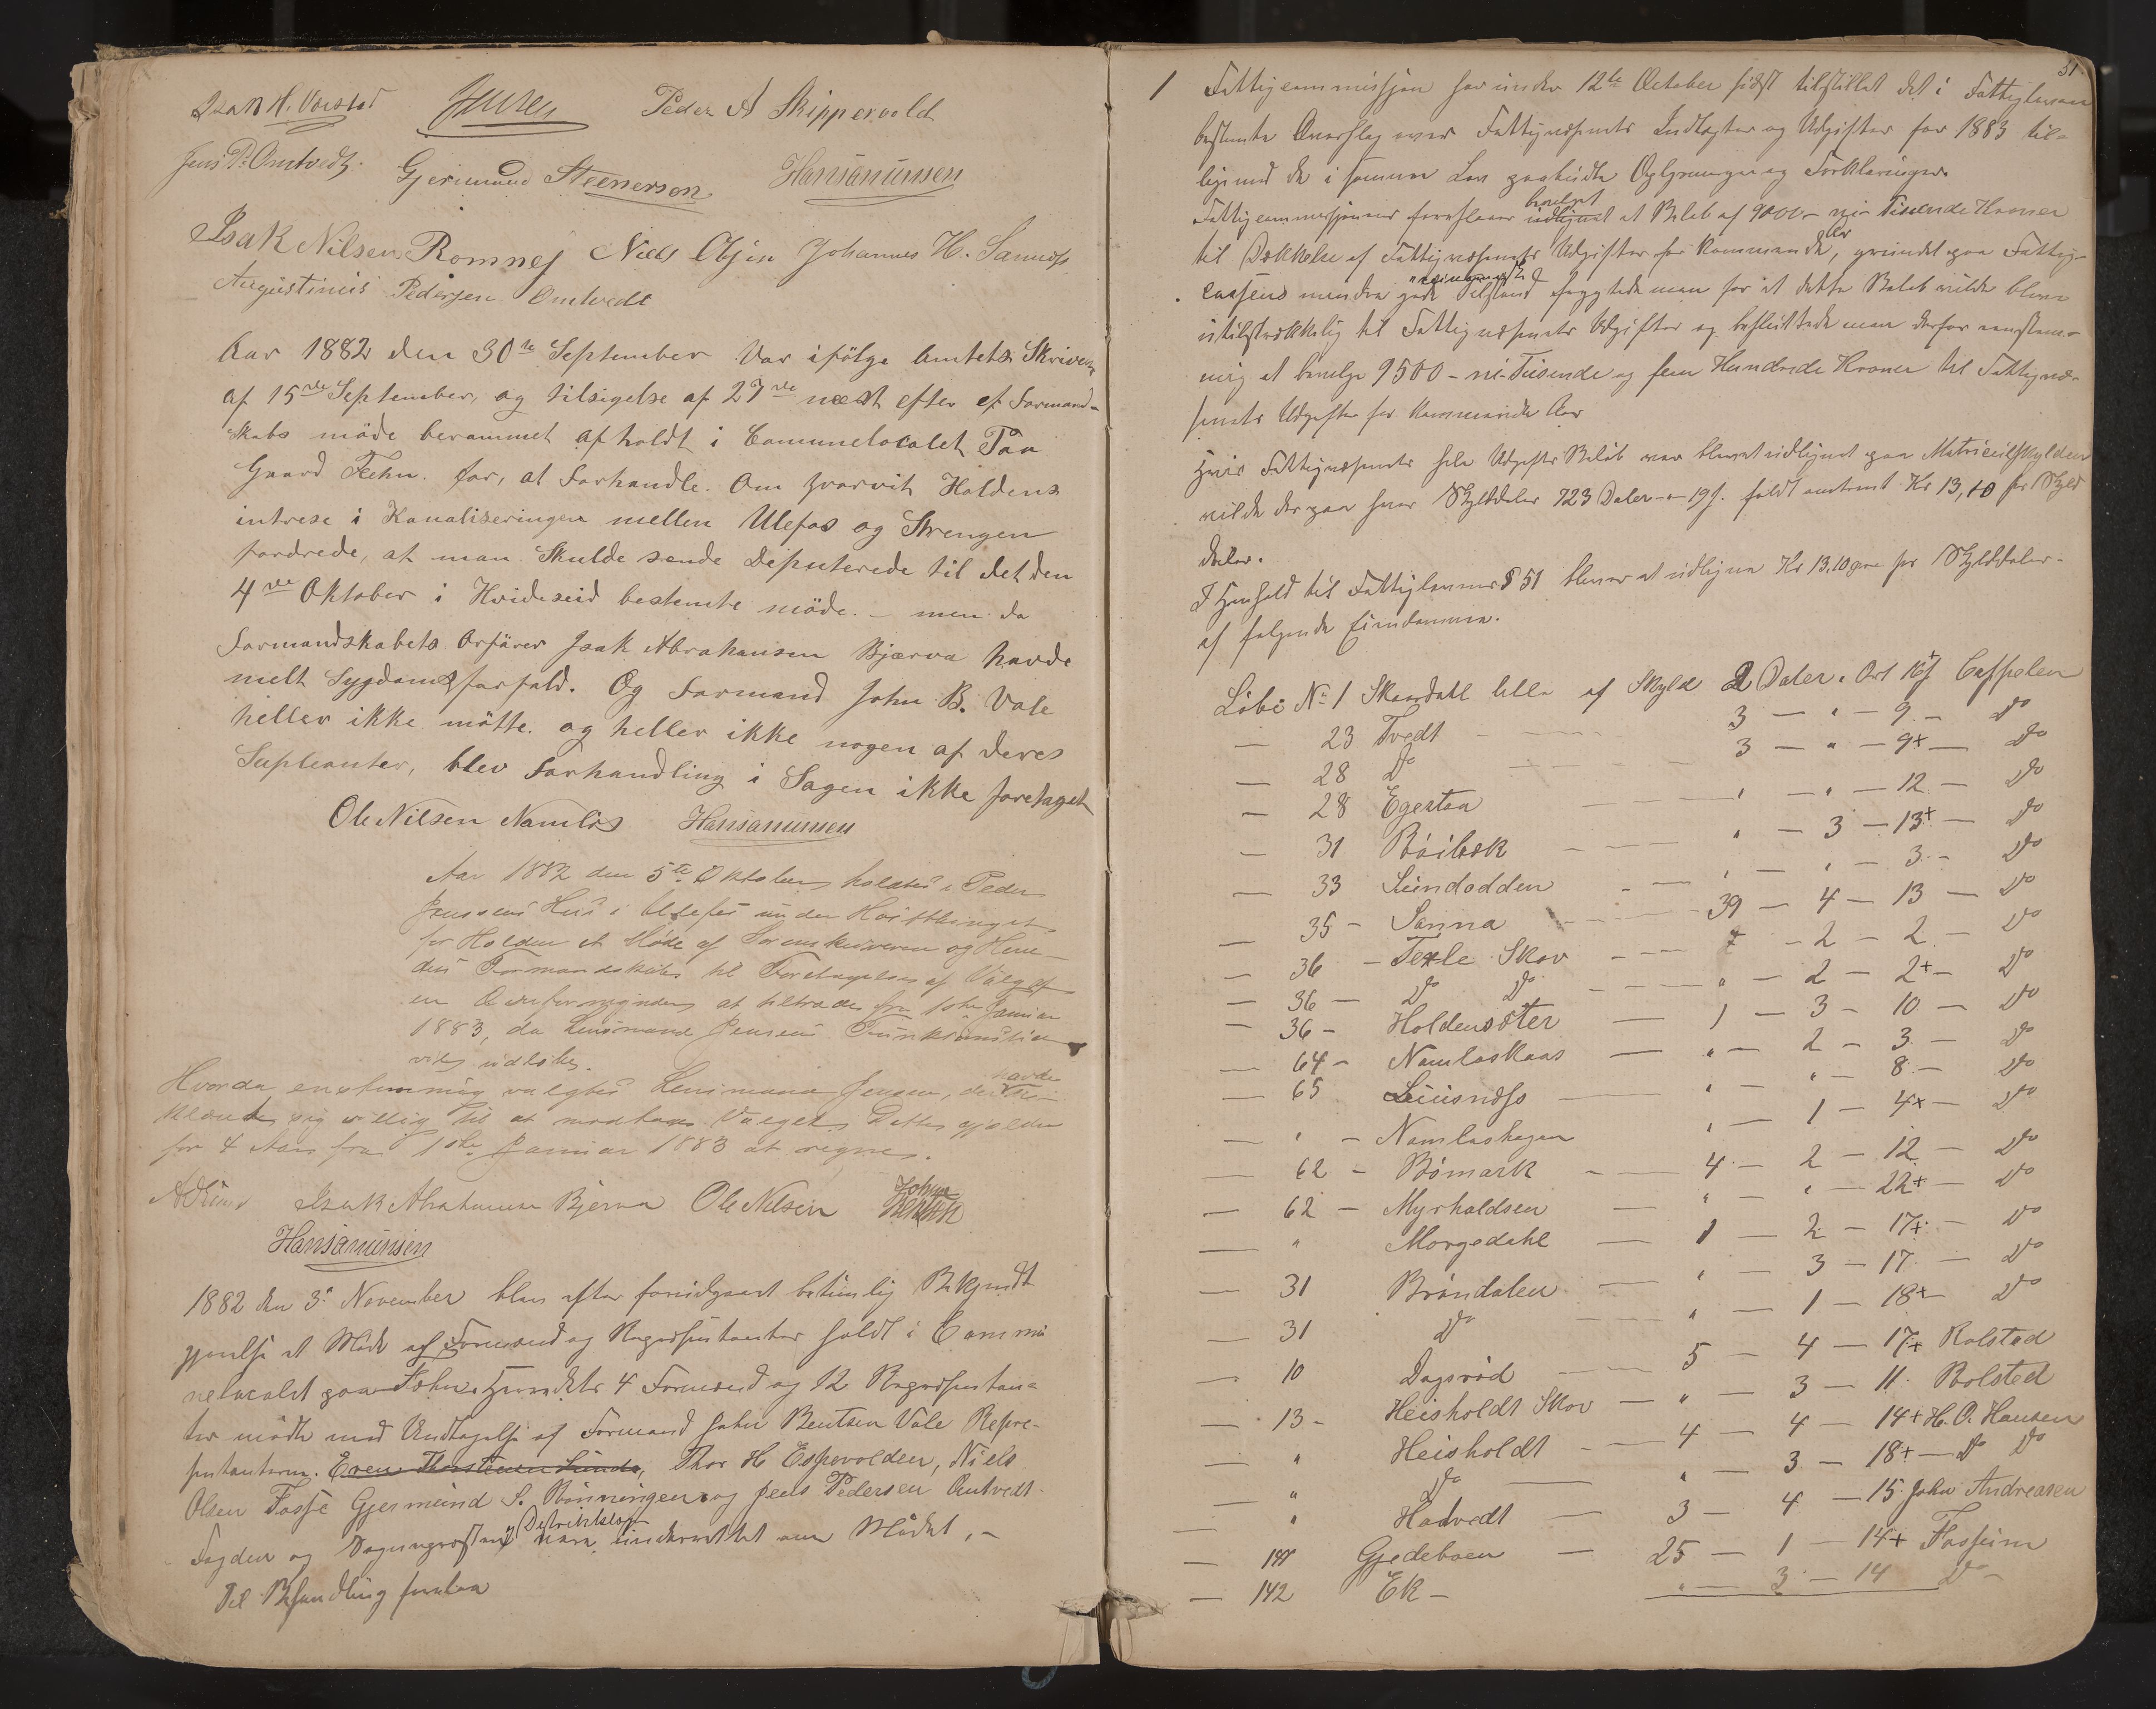 Isak H. Vorstad Jensen Peder A Skippervold
Jens P. Omtvedt. Gjermund Steenersen. Hans Amunsen
Isak Nilsen Romnes Niels Olsen Johannes H. Sannæss
Augustinus Pedersen Omtvedt
Aar 1882 den 30te September Var ifölge Amtets Skriven
af 15de September, og tilsigelse af 27de næst efter et Formand-
skabs möde berammet afholdt i Comunelocalet Paa
Gaard Fæhn. for, at Forhandle. Om hvorvit Holdens
intrese i Kanaliseringen mellem Ulefos og Strengen
fordrede, at man Skulde sende Deputerede til det den
4de Oktober i Hvideseid bestemte möde. – men da
Formandskabets Orförer Isak Abrahamsen Bjærva havde
melt Sygdomsforfald. Og Formand John B. Vale
heller ikke mötte. og heller ikke nogen af deres
Supleanter, blev Forhandling i Sagen ikke foretaget
Ole Nilsen Namløs Hans Amunsen
Aar 1882 den 5te Oktober holdtes i Peder
Jenssens Hus i Ulefos under Høstthinget
for Holden et Møde af Sorenskriveren og Herre-
dets Formandskab til Foretagelse af Valg af
en Overformynder at tiltræde fra 1ste Januar
1883, da Lensmand Jensens Funktionstid
vil udløbe.
Hvorda enstemmig valgtes Lensmand Jensen, der havde er-
klæret sig villig til at modtage Valget. Dette gjælder
for 4 Aar fra 1ste Januar 1883 at regne.
Isak Abrahamsen Bjerva Ole Nilsen John Bentsen
Hans Amunsen
1882 den 3. November blev efter forudgaaet betimelig Bekjendt
gjørelse et Møde af Formænd og Repræsentanter holdt i Commu
nelocalet paa Fæhn. Herredets 4 Formænd og 12 Repræsentan-
ter mødte med Undtagelse af Formand John Bentsen Vale Repræ-
sentanterne. Even Thorstensen Lunde, Thor H Espevolden, Niels
Olsen Fosse Gjermund S. Bønningen og Jens Pedersen Omtvedt.
Fogden og Sogneprest og Distriktslæge vare underrettet om Mødet, –
Til Behandling forelaa
51.
1 Fattigcommissjon har under 12te October sidst tilstillet det i Fattigloven
bestemte Overslag over Fattigvæsenets Indtægter og Udgifter for 1883 til-
ligemed de i samme Lov paabudte Oplysninger og Forklaringer.
Fattigcommissjonen foreslaar bevilget udlignet et Beløb af 9000 – ni Tusende Kroner
til Dækkelse af Fattigvæsenets Udgifter for kommende Aar, grundet paa Fattig-
cassens mindre gode Tilstand frygtede man for at dette Beløb vilde blive
utilstrækkelig til Fattigvæsenets Udgifter og besluttede man derfor enstem-
mig at bevilge 9500 – ni-Tusende og fem Hundrede Kroner til Fattigvæ-
senets Udgifter for kommende Aar
Hvis Fattigvæsenets hele Udgifts Beløb var blevet udlignet paa Matriculskylden
vilde der paa hver Skylddaler 723 Daler - " - 19 s. faldt omtrent Kr 13,10 pr Skyld
daler.
I Henhold til Fattiglovens § 51 bliver at udligne Kr 13,10 øre pr Skylddaler
af følgende Eiendomme.
Löbe No 1 Skardahl lille af Skyld 2 Daler " Ort 16+ s Cappelen
— 23 Tvedt 3 — " — 9 — Do
— 28 Do 3 — " — 9+ — Do
— 28 Egertaa " — " — 12 — Do
— 31 Böibæk " — 3 — 13+ — Do
— 33 Lundodden " — " — 3 — Do
— 35 – Sanna 39 — 4 — 13 — Do
— 36 – Texle Skov 7 — 2 — 2 — Do
— 36 – Do Do " — 2 — 2+ — Do
— 36 – Holdensæter 1 — 3 — 10 — Do
— 64 – Namløskaas " — 2 — 3 — Do
— 65 Liusnæss " — " — 8 — Do
— " – Namløshagen " — 1 — 4+ — Do
— 62 – Bömark 4 — 2 — 12 — Do
— 62 – Myrholdsen " — " — 22+ — Do
— " Morgedahl 1 — 2 — 17+ — Do
— 31 Bröndalen " — 3 — 17 — Do
— 31 Do " — 1 — 18+ — Do
— 10 Dagsrød 5 — 4 — 17+ Rolstad
— 13 – Heisholdt Skov " — 3 — 11 Bolsted
— " Heisholdt 4 — 4 — 14+ H. O. Hansen
— " Do " — 3 — 18+ — Do Do
— " Hadvedt 3 — 4 — 15 John Andreasen
— 141 Gjedeboen 25 — 1 — 14+ Fossum
— 142 Ek – " — 3 — 14 Do –